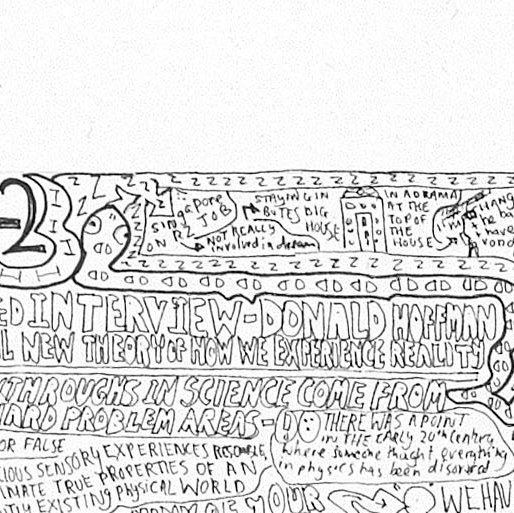 -2
Singapore
JOB
ON RZ
NOT REALLY
involved in dream
STAYING IN
BUTES BIG
HOUSE
IN A DRAMA
AT THE
TOP OF
THE
HOUSE
I'M
HANG
he ba
have
vond
ED INTERVIEW-DONALD HOFFMAN
L NEW THEORY OF HOW WE EXPERIENCE REALITY
KTHROUGHS IN SCIENCE COME FROM
HARD PROBLEM AREAS -
THERE WAS A POINT
IN THE EARLY 20th Century
where someone thought everything
in physics has been disorved
OR FALSE
CIOUS SENSORY EXPERIENCES RESEMBLE
INATE TRUE PROPERTIES OF AN
TLY EXISTING PHYSICAL WORLD
YOUR
WE HAV